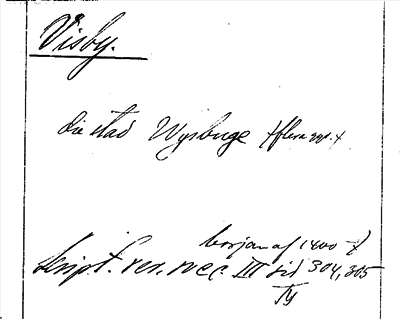 Visby.
die stad Wysbuge (flera ggr.)
början af 1400 t
Script. rer. svec. III sid 304, 305
Ty